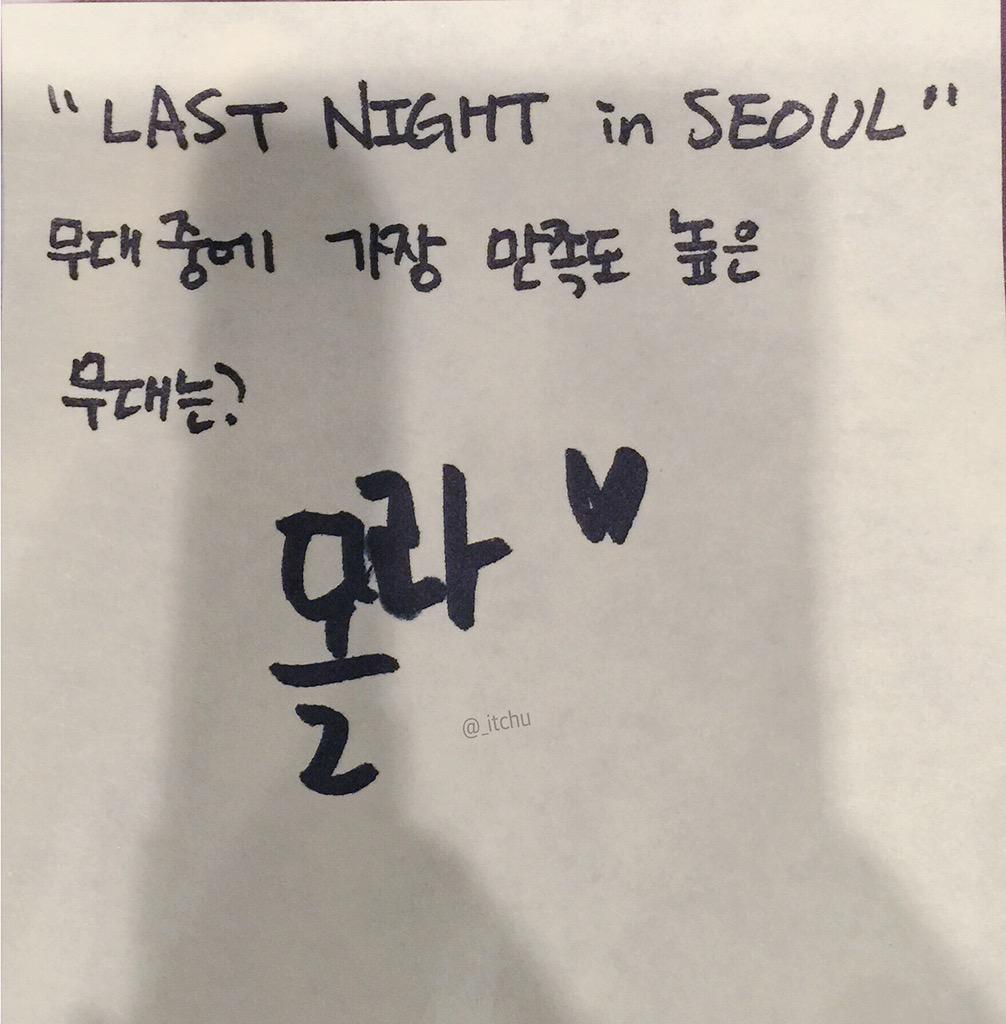 "LAST NIGHT in SEOUL"
무대 중에 가장 만족도 높은
무대는?
몰라♥
@_itchu